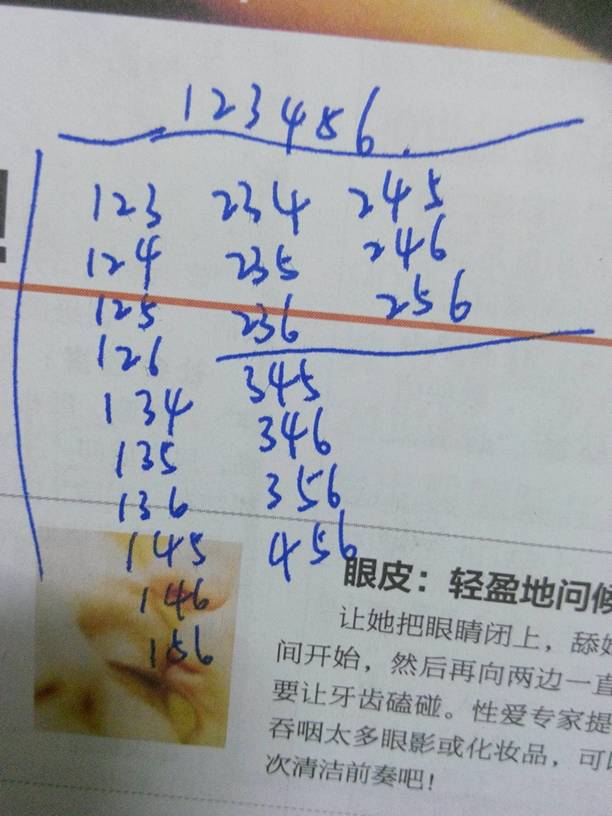 123456
123 234 245
124 235 246
125 236 256
126 345
134 346
135 356
136 456
145
146
156
眼皮：轻盈地问候
让她把眼睛闭上，舔
间开始，然后再向两边一直
要让牙齿磕碰。性爱专家提
吞咽太多眼影或化妆品，可
次清洁前奏吧！